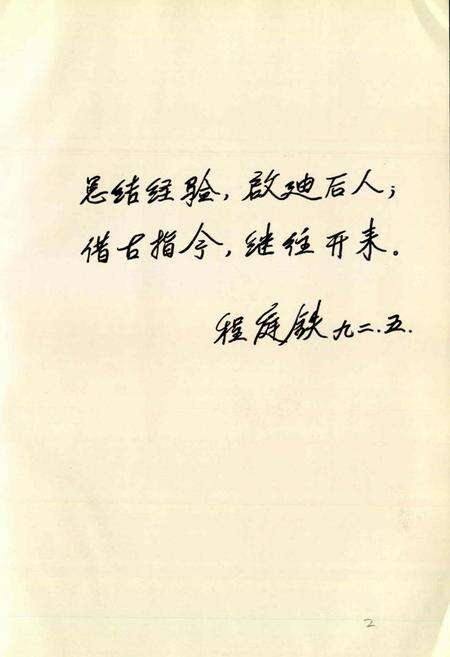 总结经验，启迪后人；
借古指今，继往开来。
程庭铁 九二.五.
2